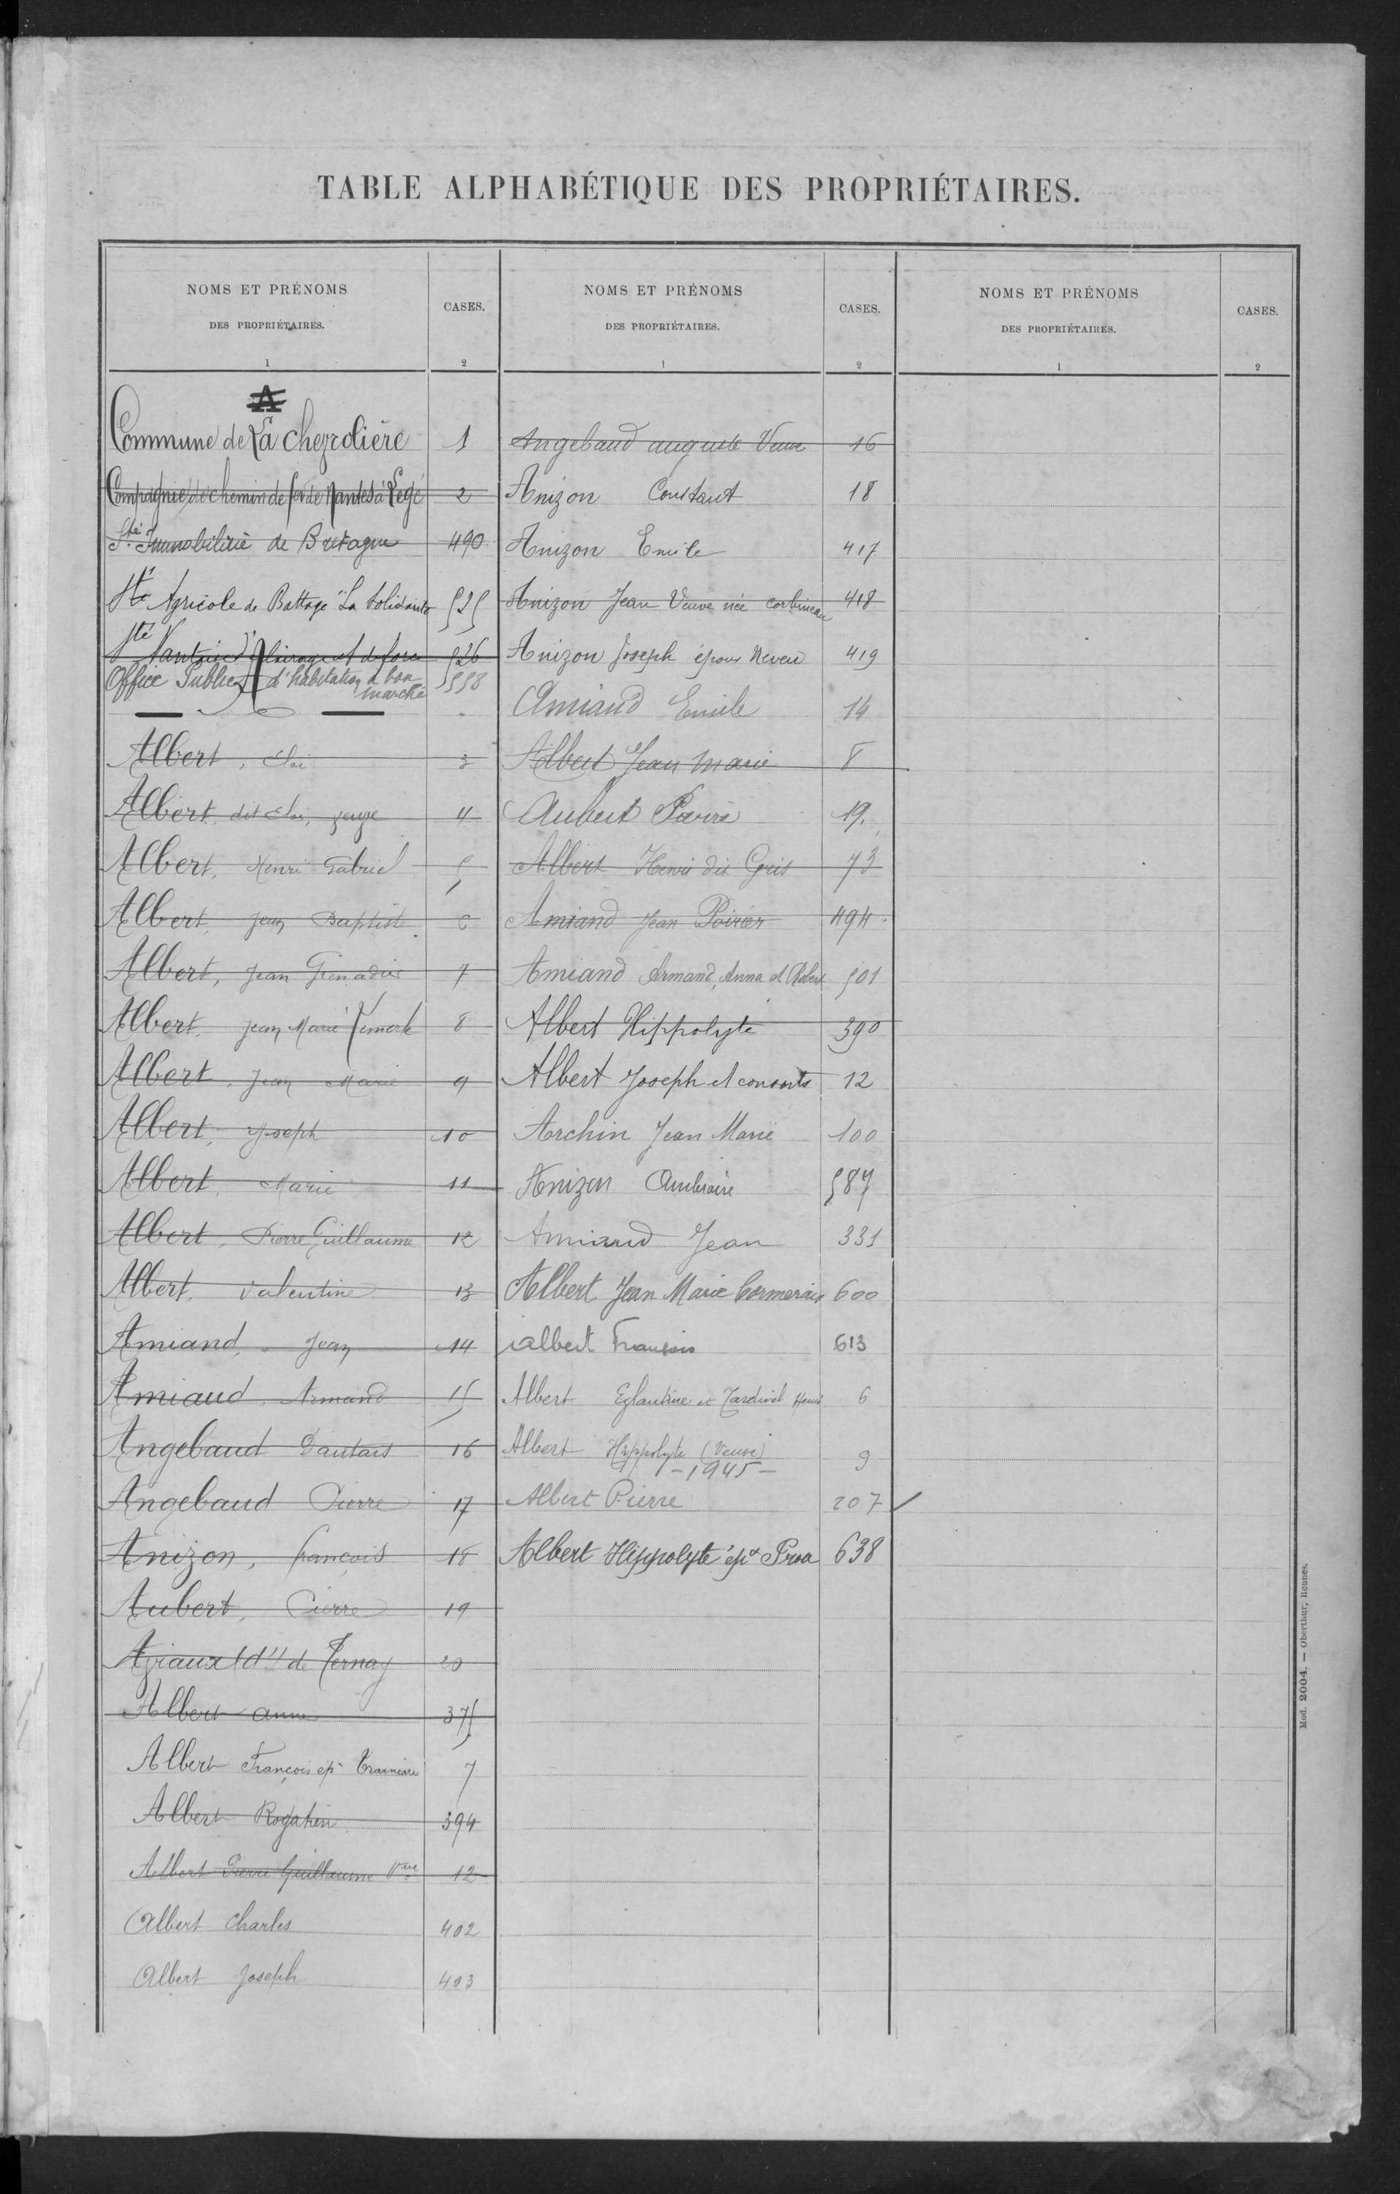 TABLE ALPHABÉTIQUE DES PROPRIÉTAIRES.
NOMS ET PRÉNOMS
DES PROPRIÉTAIRES.
1
CASES.
2
A
Commune de La Chevrolière 1
Compagnie de chemin de fer de Nantes à Legé 2
Sté Immobilière de Bretagne 490
Sté Agricole de Battage "La Solidarité 525
Sté Nantaise d'Eclairage et de force 526
Office Public d'habitation à bon marché 558
Albert, 3
Albert, dit 4
Albert, Henri Gabriel 5
Albert, Jean Baptiste 6
Albert, Jean Grenadier 7
Albert, Jean Marie 8
Albert, Jean Marie 9
Albert, Joseph 10
Albert, Marie 11
Albert, Pierre Guillaume 12
Albert, Valentine 13
Amiand, Jean 14
Amiaud, Armand 15
Angebaud Dautais 16
Angebaud Pierre 17
Anizon, françois 18
Aubert, Pierre 19
de Ternay 20
Albert anne 375
Albert François ép. 7
Albert Rogatien 394
Albert Pierre Guillaume Vve 12
Albert Charles 402
Albert Joseph 403
NOMS ET PRÉNOMS
DES PROPRIÉTAIRES.
1
CASES.
2
Angebaud auguste Veuve 16
Anizon Constant 18
Anizon Emile 417
Anizon Jean Veuve née corbineau 418
Anizon Joseph époux Neveu 419
Amiaud Emile 14
Albert Jean Marie 8
Aubert Pierre 19.
Albert Henri dit Gris 73
Amiand Jean Poirier 494
Amiand Armand, Anna et Robert 501
Albert Hippolyte 390
Albert Joseph et consorts 12
Archin Jean Marie 100
Anizon Ambroise 587
Amiaud Jean 331
Albert Jean Marie Cormerais 600
Albert François 613
Albert Eglantine et Tardivel Henri 6
Albert Hippolyte (Veuve) 9
-1945-
Albert Pierre 207
Albert Hippolyte épx Prou 638
NOMS ET PRÉNOMS
DES PROPRIÉTAIRES.
1
CASES.
2
Mod. 2004. — Oberthur, Rennes.